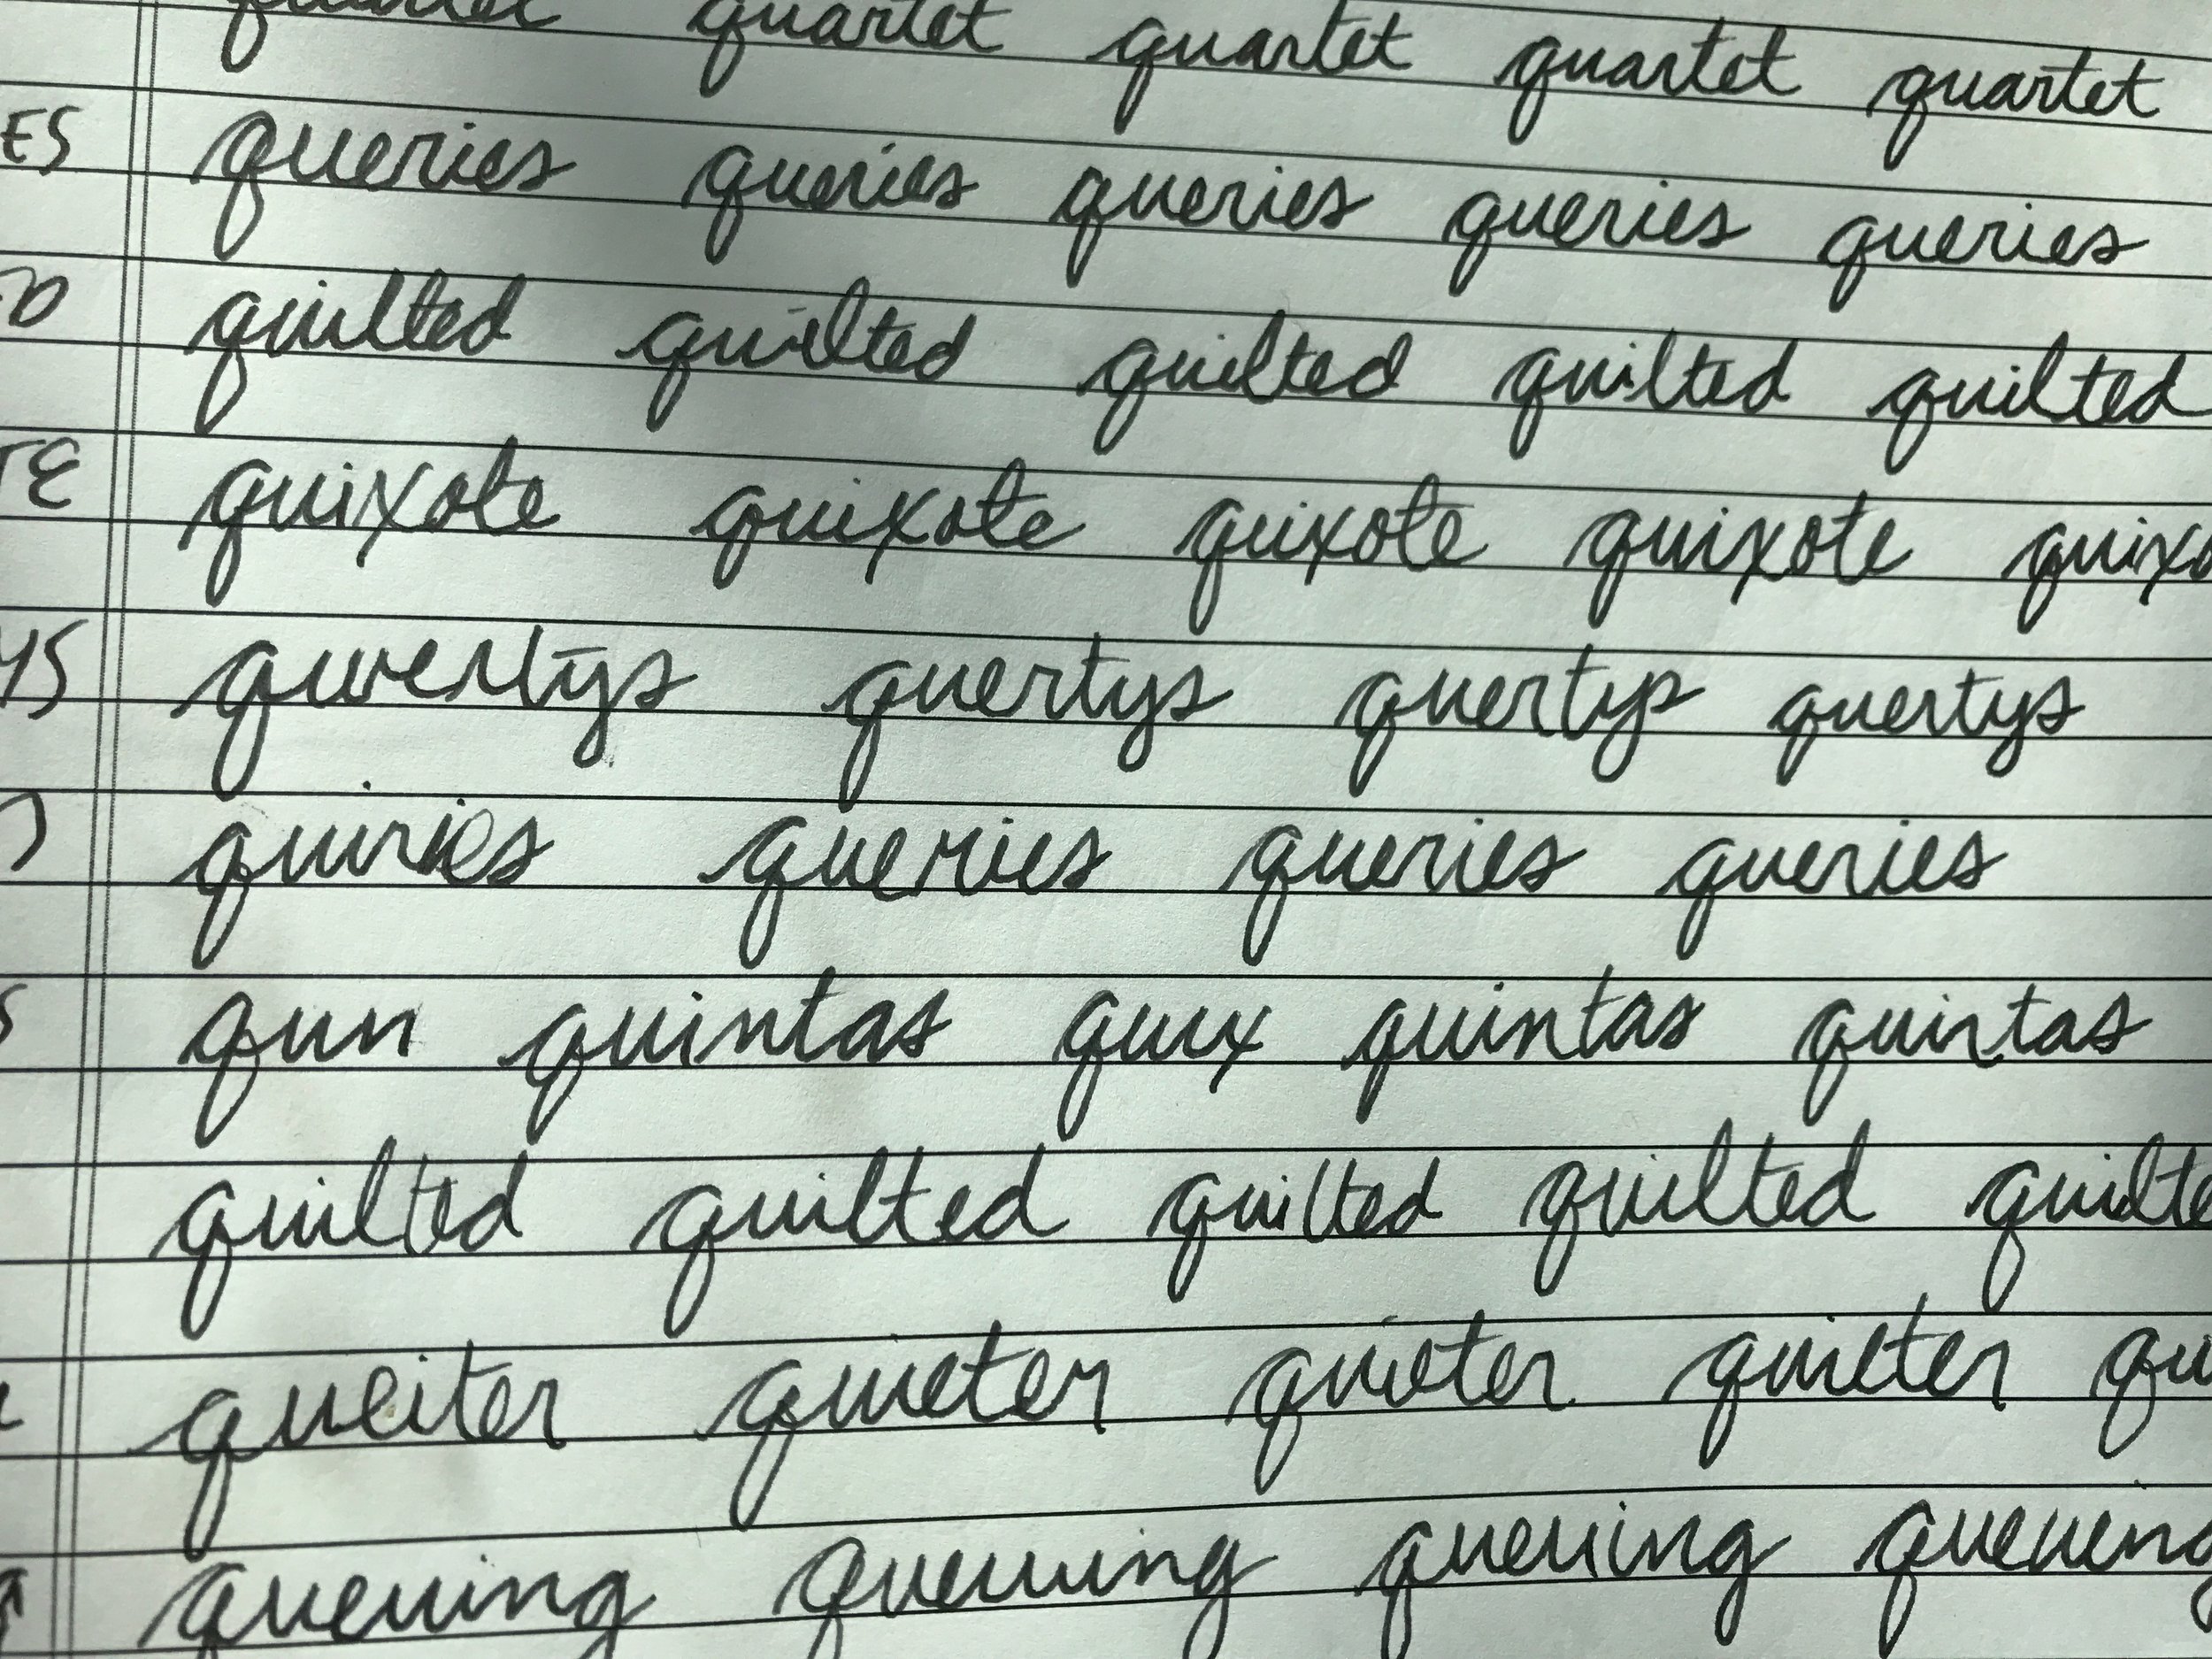 quartet quartet quartet quartet quartet
ES queries queries queries queries queries
quilted quilted quilted quilted quilted
TE quixote quixote quixote quixote quixo
YS qwertys quertys quertys quertys
quiries queries queries queries
S qun quintas quix quintas quintas
quilted quilted quilted quilted quilte
queiter quieter quieter quieter qu
queuing queuing queuing queueing